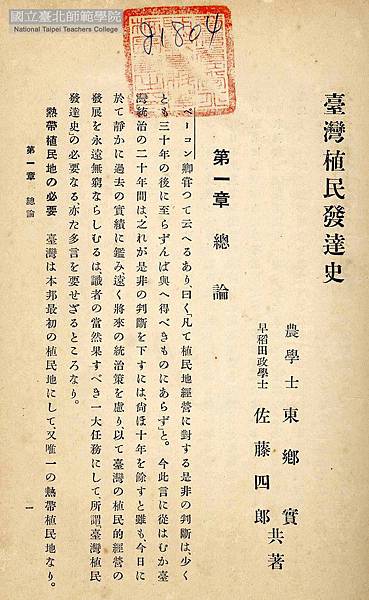 國立臺北師範學院
National Taipei Teachers College
91804
臺灣植民發達史
農學士 東鄉實
早稻田政學士 佐藤四郎
共著
第一章 總論
ベーコン卿嘗つて云へるあり曰く、凡て植民地經營に對する是非の判斷は、少く
とも三十年の後に至らずんば與へ得べきものにあらず』と。今此言に從はむか臺
灣統治の二十年間は、之れが是非の判斷を下すには、尙ほ十年を餘すと雖も、今日に
於て靜かに過去の實績に鑑み遠く將來の統治策を慮り、以て臺灣の植民的經營の
發展を永遠無窮ならしむるは、識者の當然果すべき一大任務にして、所謂『臺灣植民
發達史』の必要なる、亦た多言を要せざるところなり。
熱帶植民地の必要 臺灣は本邦最初の植民地にして、又唯一の熱帶植民地なり。
第一章 總論
一